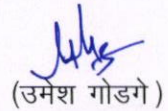 (उमेश गोडगे )